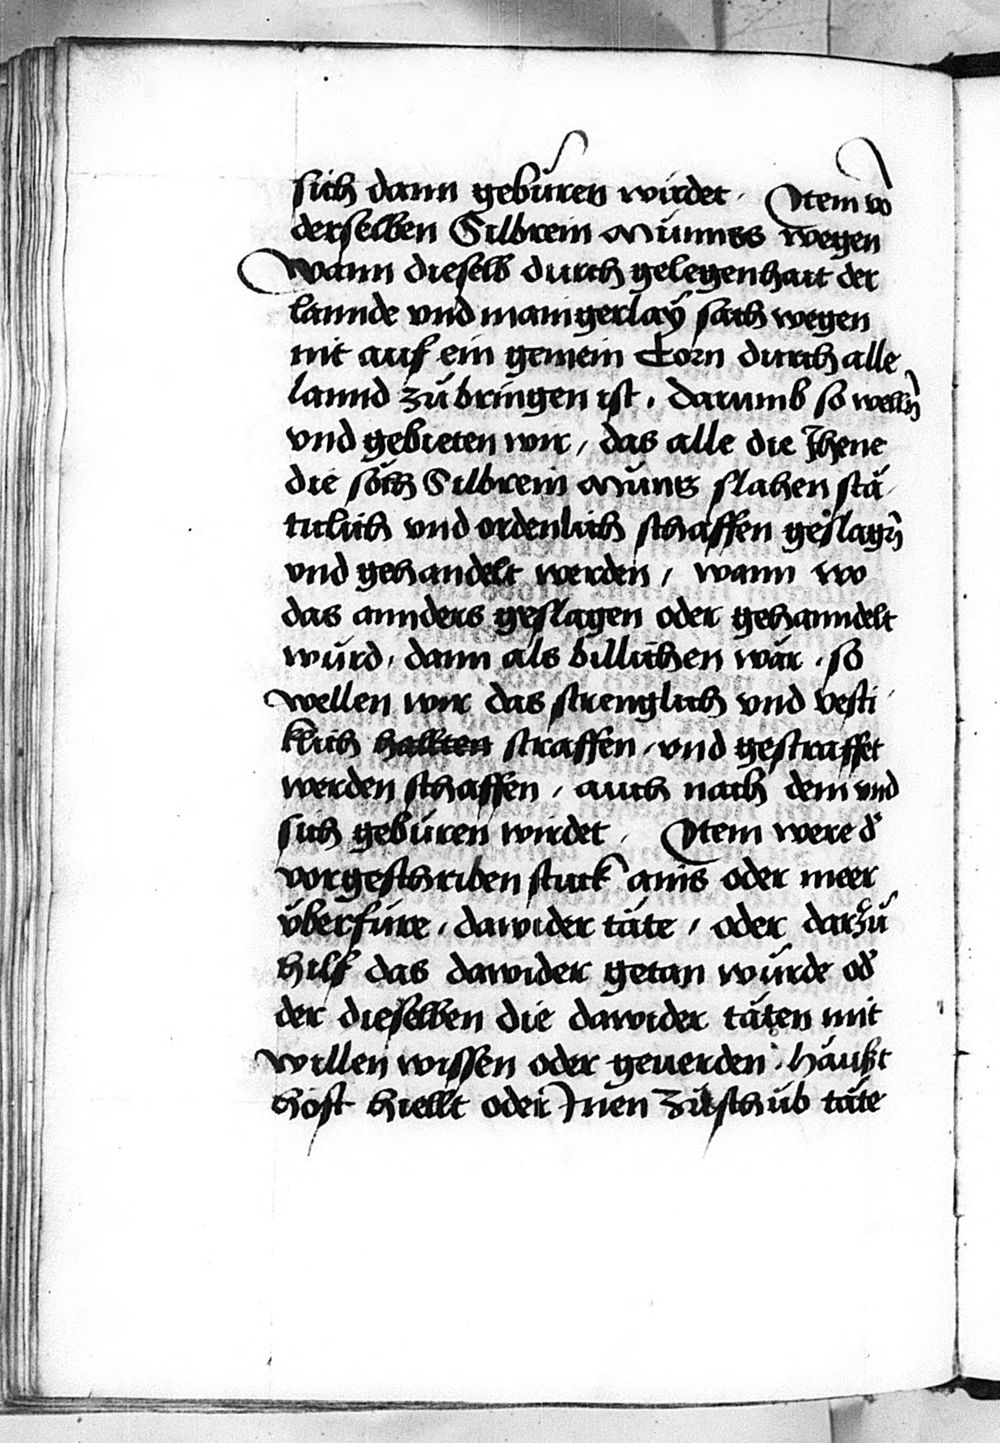 sich dann gebüren wirdet · Item vō
derselben Silbrein Münnss wegen
Wann dieselb durch gelegenhait der
lannde vnd manigerlaÿ sach wegen
nit auf ein gemein Corn durch alle
lannd zůbringen ist · darumb so wellñ
vnd gebieten wir / das alle die Jhene
die sölh Silbrein Münss slahen stä /
tiklich vnd ordenlich schaffen geslagñ
vnd gehandelt werden / wann wo
das annders geslagen oder gehanndelt
würd / dann als billichen wär · so
wellen wir das strenglich vnd vesti /
klich hallten straffen / vnd gestraffet
werden schaffen / auch nach dem vnd
sich gebüren wirdet · Item were d'
vorgeschriben stuck ains oder meer
überfüre / dawider täte / oder darzů
hilf das dawider getan würde od'
der dieselben die dawider täten mit
willen wissen oder geuerden · häußt
höft hiellt oder Inen zůschub täte